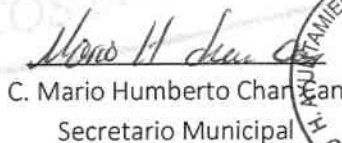 C. Mario Humberto Chan Can
Secretario Municipal
H. AYUNTAMIE